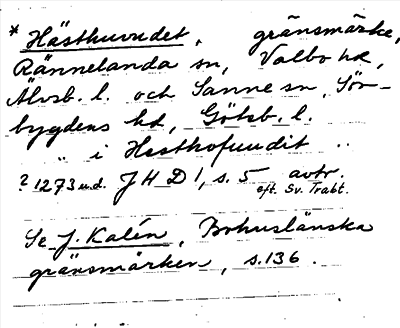 * Hästhuvudet, gränsmärke,
Rännelanda sn, Valbo hd,
Älvsb. l. och Sanne sn, Sör-
bygdens hd, Götsb. l.
" i Hesthofuudit ..
? 1273 u.d. JHD 1, s. 5 avtr.
eft. Sv. Trakt.
Se J. Kalén, Bohuslänska
gränsmärken, s. 136.